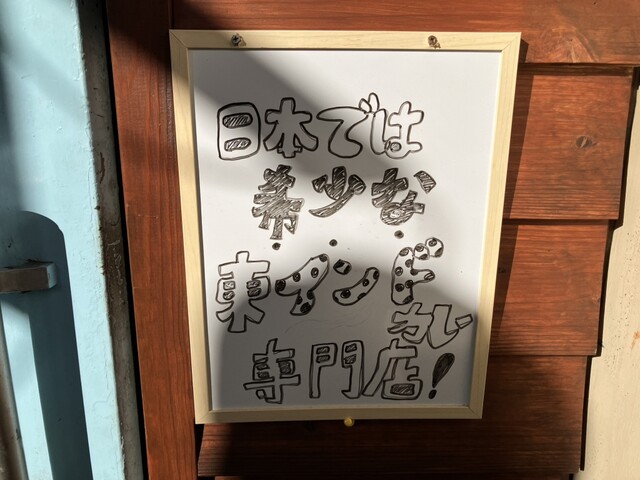 日本では
希少な
東インド
カレー
専門店!